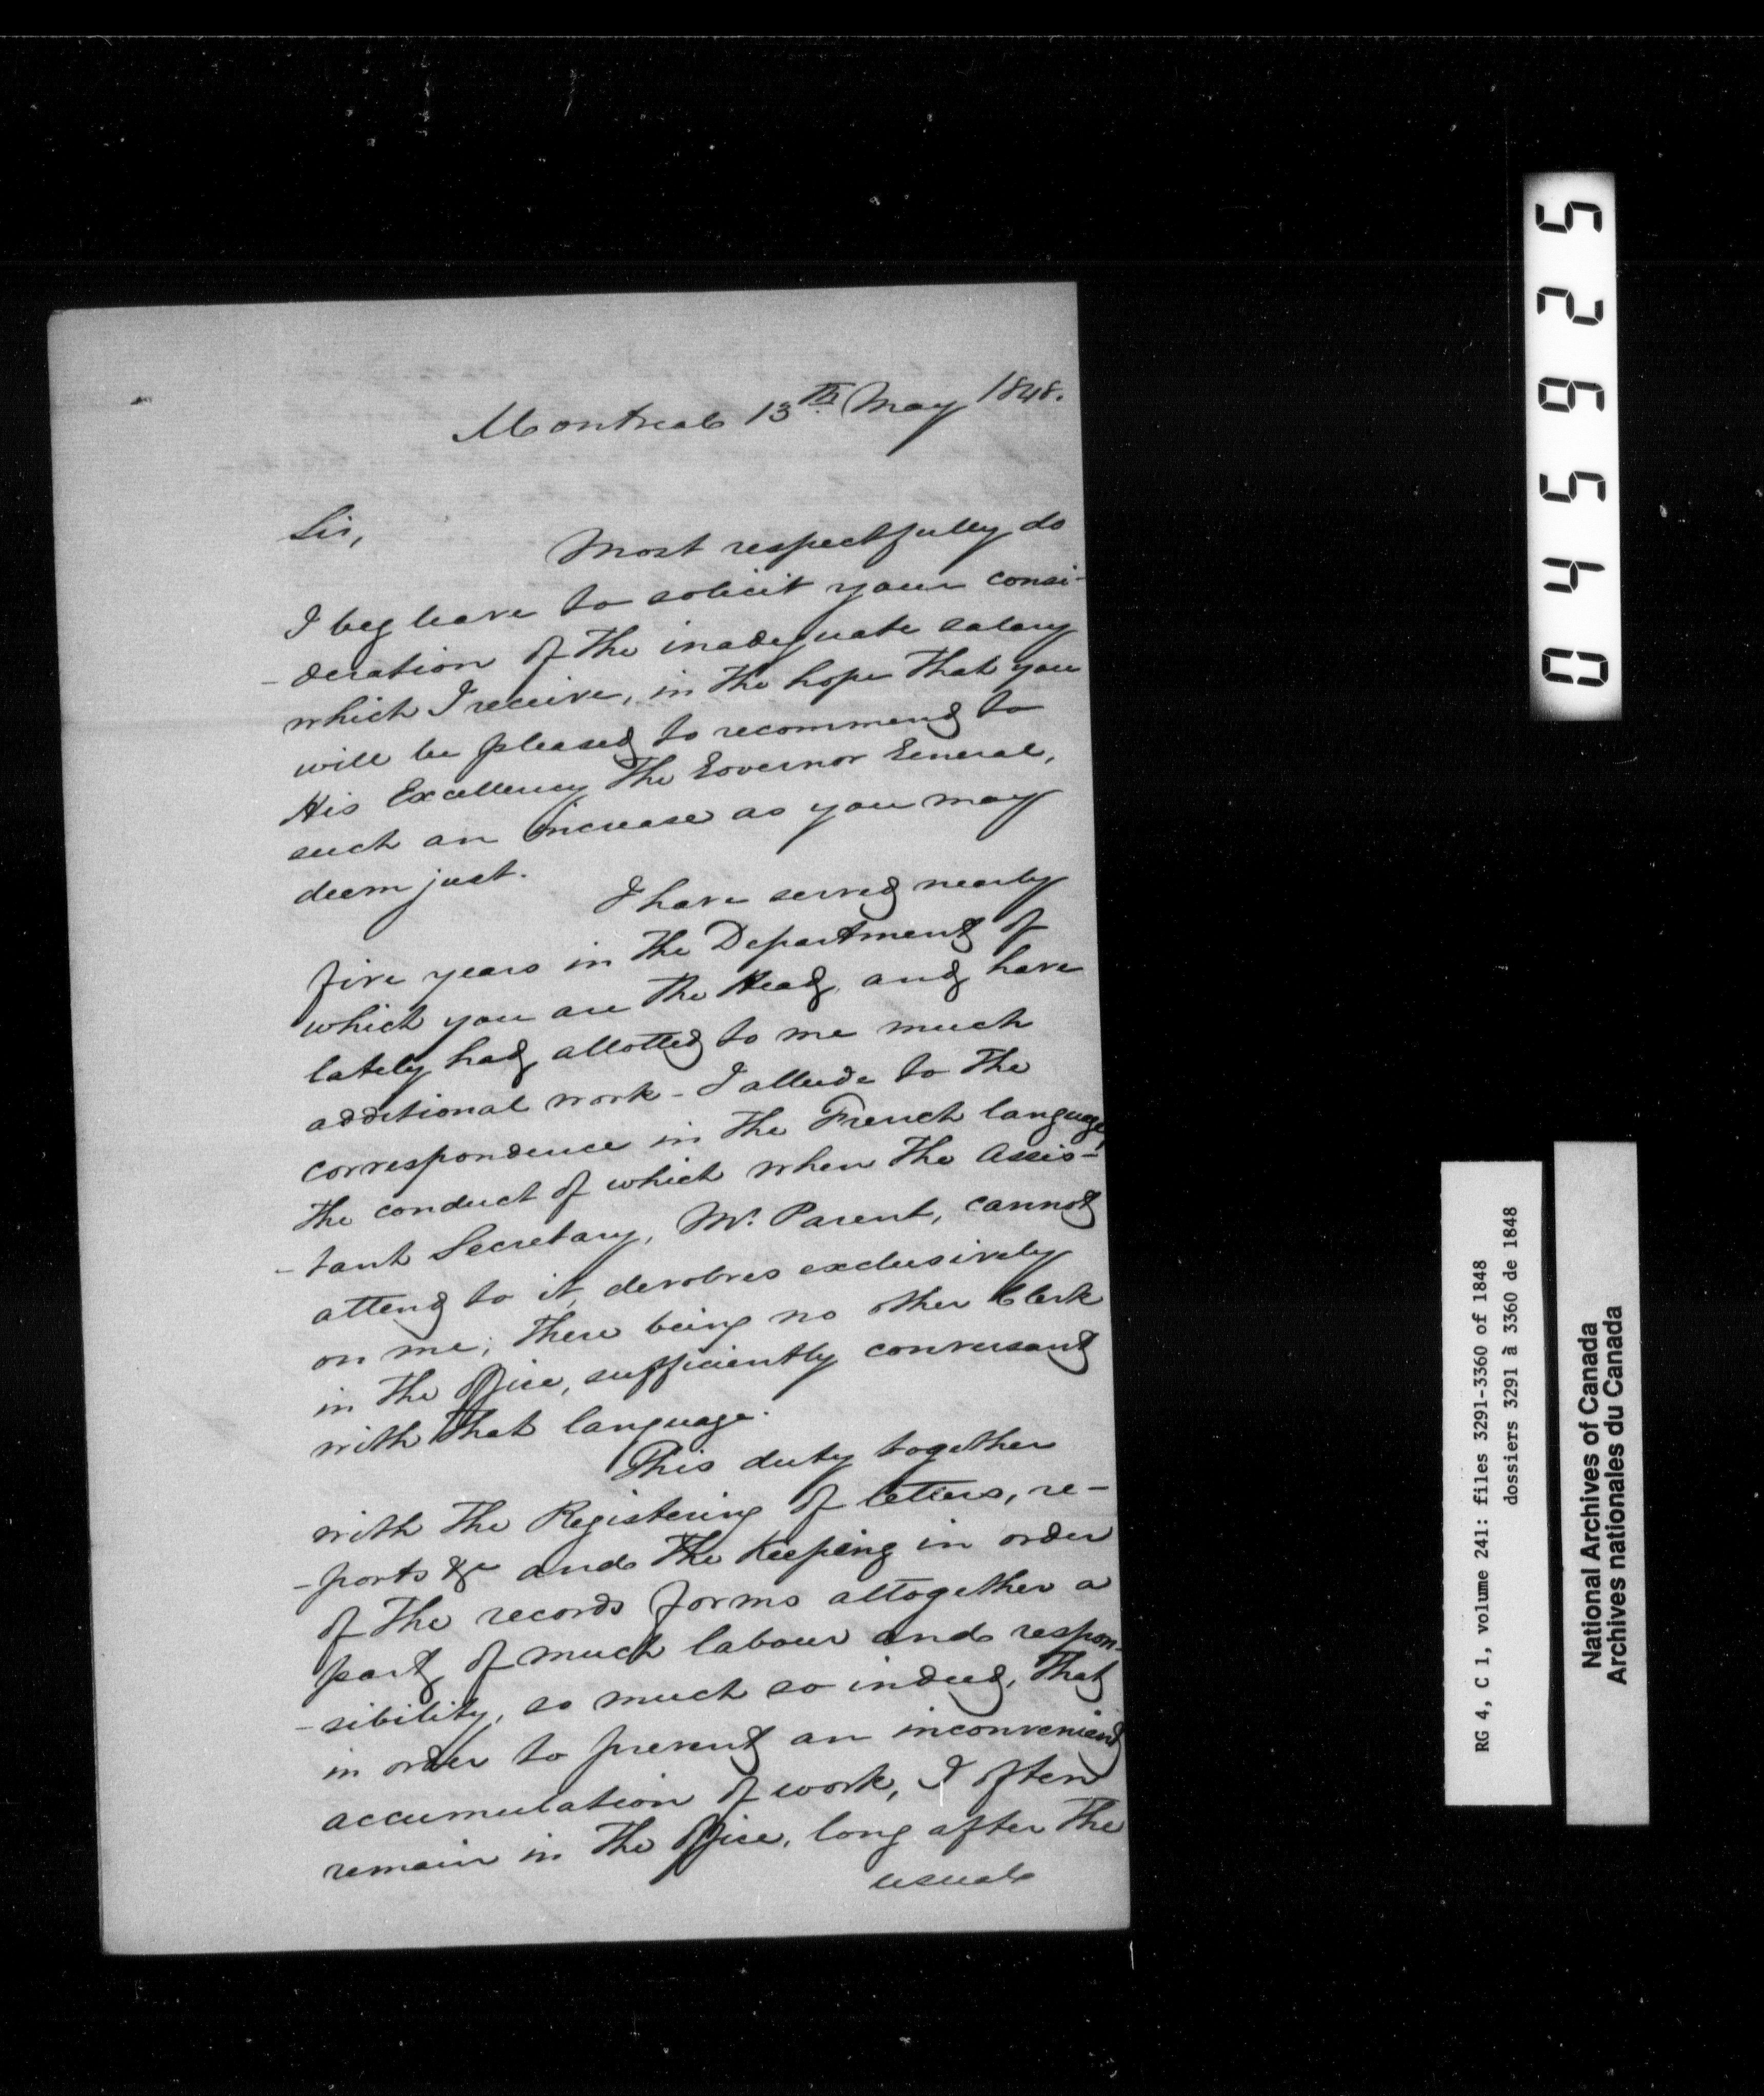 Montreal 13th May 1848.
Sir,
Most respectfully do
I beg leave to solicit your consi-
-deration of the inadequate salary
which I receive, in the hope that you
will be pleased to recommend to
His Excellency the Governor General,
such an increase as you may
deem just.
I have served nearly
five years in the Department of
which you are the Head, and have
lately had allotted to me much
additional work - I allude to the
correspondence in the French language,
the conduct of which when the Assis-
-tant Secretary, Mr. Parent, cannot
attend to it, devolves exclusively
on me; there being no other Clerk
in the Office, sufficiently conversant
with that language.
This duty together
with the Registering of letters, re-
-ports &c and the Keeping in order
of the records forms altogether a
part of much labour and respon-
-sibility, so much so indeed, that
in order to prevent an inconvenient
accumulation of work, I often
remain in the Office, long after the
usual
045625
RG 4, C 1, volume 241: files 3291-3360 of 1848
dossiers 3291 à 3360 de 1848
National Archives of Canada
Archives nationales du Canada